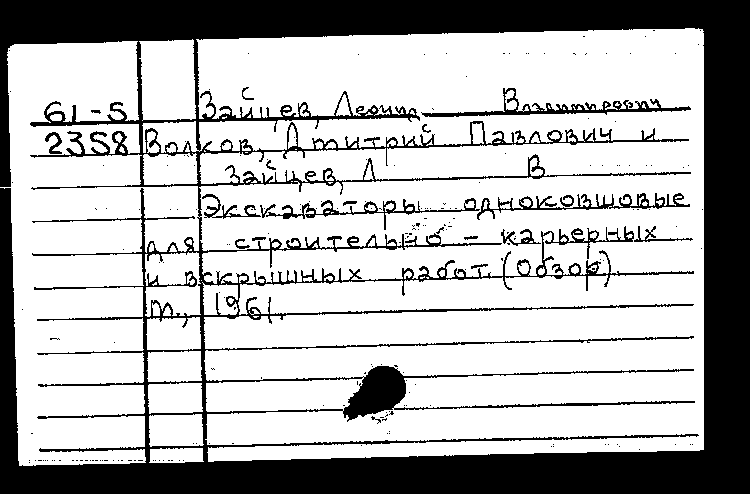 61-5 Зайцев, Леонид Владимирович
2358 Волков, Дмитрий Павлович и
Зайцев, Л В
Экскаваторы одноковшовые
для строительно - карьерных
и вскрышных работ. (Обзор).
М., 1961.